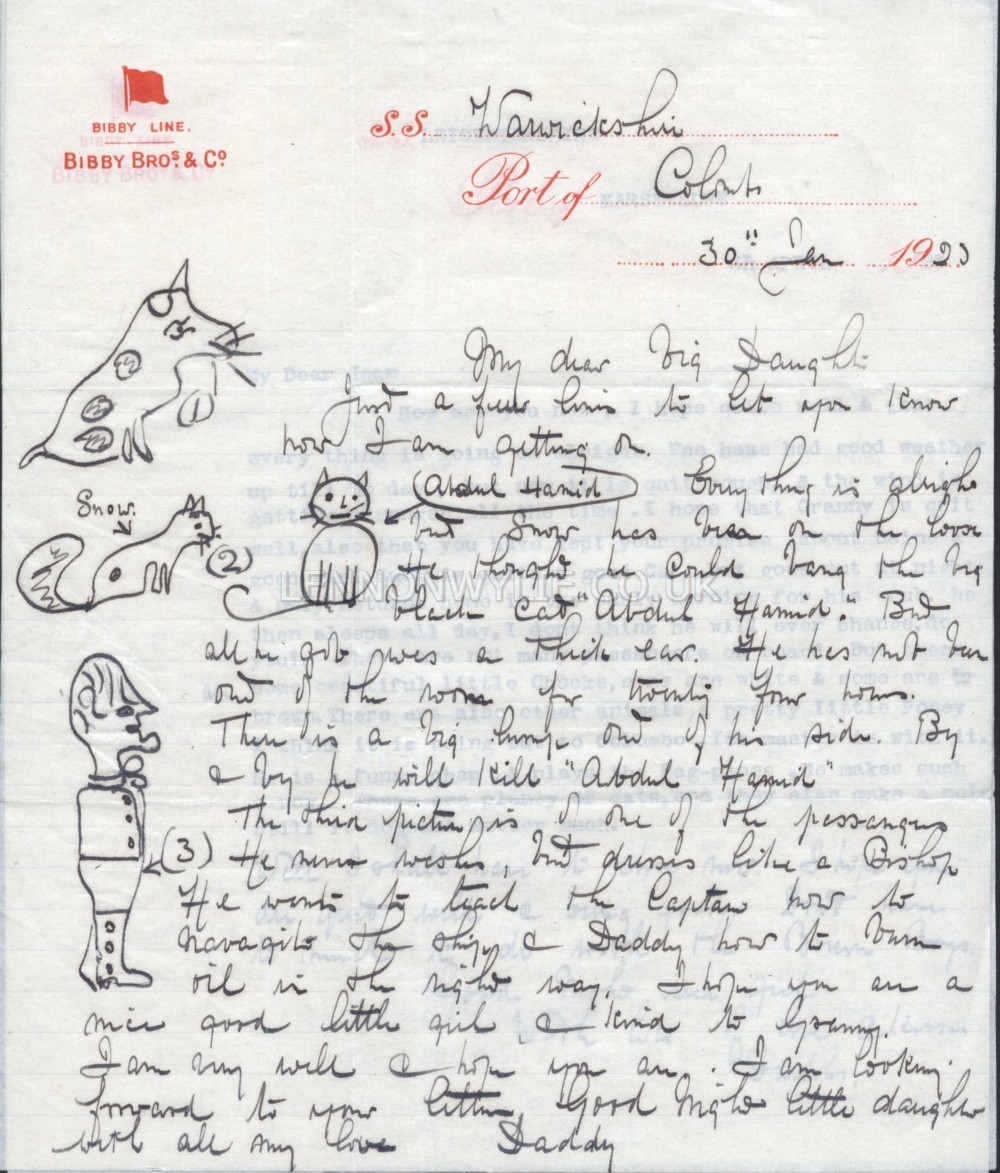 BIBBY LINE.
BIBBY BROS. & CO.
S.S. Warwickshire
Port of Colombo
30th Jan 1923
My dear big Daughter
Just a few lines to let you know
how I am getting on.
Abdul Hamid
Everything is alright
Snow.
but Snow has been on the loose
(1)
(2)
He thought he could bang the big
LENNONWYLIE.CO.UK
black cat "Abdul Hamid." But
all he got was a thick ear. He has not been
out of the room for twenty four hours.
There is a big lump out of his side. By
& by he will kill "Abdul Hamid"
The third picture is one of the passengers
(3) He never washes but dresses like a Bishop
He wants to teach the Captain how to
navagite the ship, & Daddy how to burn
oil in the right way. I hope you are a
nice good little girl & kind to Granny.
I am very well & hope you are. I am looking
forward to your letter. Good Night little daughter
with all my love Daddy